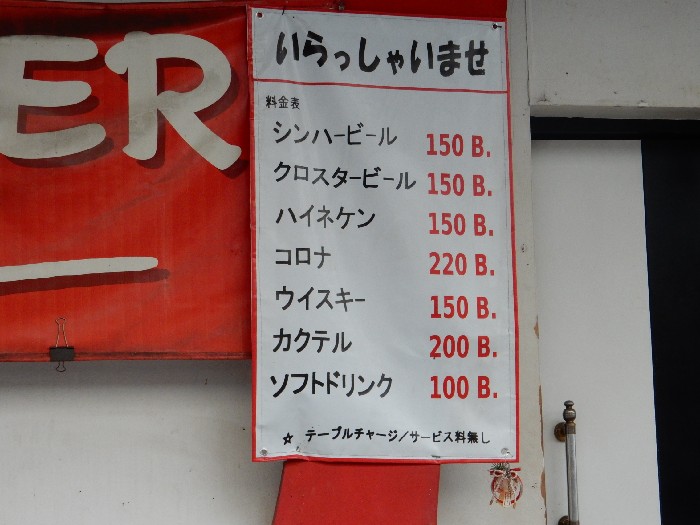 ER
いらっしゃいませ
料金表
シンハービール 150 B.
クロスタービール 150 B.
ハイネケン 150 B.
コロナ 220 B.
ウイスキー 150 B.
カクテル 200 B.
ソフトドリンク 100 B.
☆ テーブルチャージ/サービス料無し